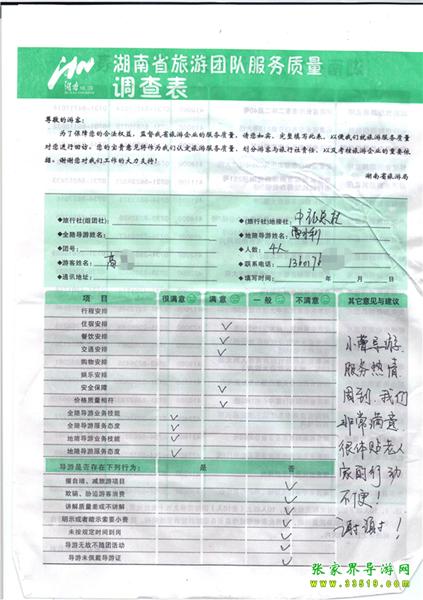 湖南省旅游团队服务质量
调查表
尊敬的游客：
为了保障您的合法权益，监督我省旅游企业的服务质量，请您如实、完整填写此表，以便我们就旅游服务质量
对您进行回访。您的宝贵意见将作为我们认定旅游服务质量、划分游客与旅行社责任、以及考核旅游企业的重要依
据。谢谢您对我们工作的大力支持！
湖南省旅游局
◆旅行社(组团社)：
◆(旅行社)地接社：
◆全陪导游姓名：
◆地陪导游姓名：
◆团号：
◆人数：4人
◆游客姓名：
◆联系电话：
◆通讯地址：
◆填写时间： 年 月 日
项 目 很满意 满意 一般 不满意 其它意见与建议
行程安排
住宿安排 ✓
餐饮安排 ✓
交通安排 ✓
购物安排
娱乐安排
安全保障 ✓
价格质量相符 ✓
全陪导游业务技能 ✓
全陪导游服务态度 ✓
地陪导游业务技能 ✓
地陪导游服务态度 ✓
小曹导游
服务热情
周到.我们
非常满意
很体贴老人
家因行动
不便！
谢谢！
导游是否存在下列行为： 是 否
擅自增、减旅游项目 ✓
欺骗、胁迫游客消费 ✓
讲解质量差或不讲解 ✓
明示或者暗示索要小费 ✓
未按规定时间到岗 ✓
导游无故不随团活动 ✓
导游未佩戴导游证 ✓
张家界导游网
www.33519.com